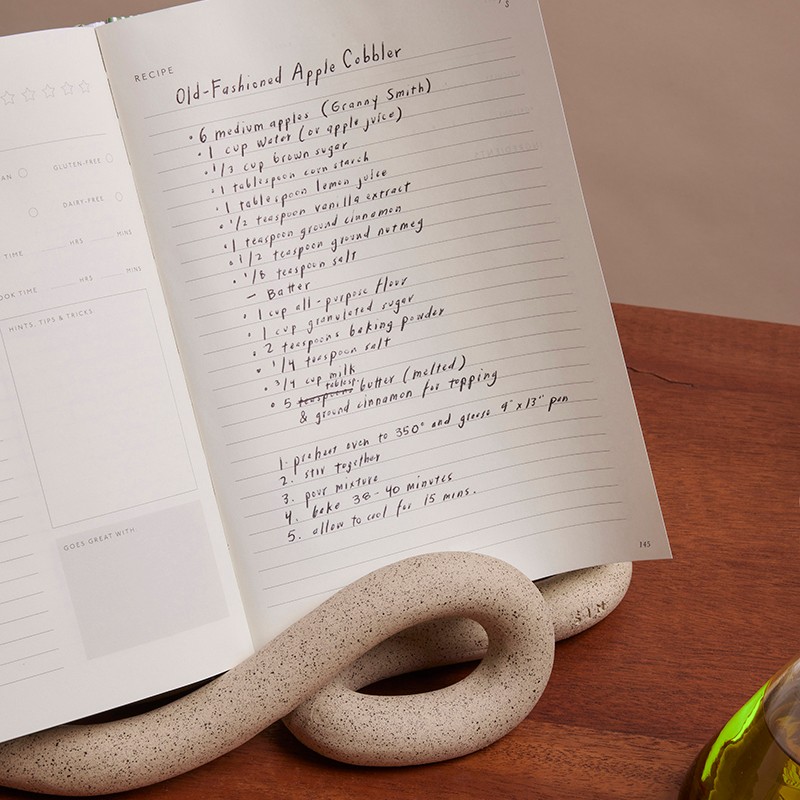 AN
GLUTEN-FREE
DAIRY-FREE
TIME HRS MINS
OOK TIME HRS MINS
HINTS, TIPS & TRICKS
GOES GREAT WITH
RECIPE
Old-Fashioned Apple Cobbler
• 6 medium apples (Granny Smith)
• 1 cup water (or apple juice)
• 1/3 cup brown sugar
• 1 tablespoon corn starch
• 1 tablespoon lemon juice
• 1/2 teaspoon vanilla extract
• 1 teaspoon ground cinnamon
• 1/2 teaspoon ground nutmeg
• 1/8 teaspoon salt
– Batter
• 1 cup all-purpose flour
• 1 cup granulated sugar
• 2 teaspoons baking powder
• 1/4 teaspoon salt
• 3/4 cup milk
tablesp.
• 5 teaspoons butter (melted)
& ground cinnamon for topping
1. preheat oven to 350° and grease 9" x 13" pan
2. stir together
3. pour mixture
4. bake 38-40 minutes
5. allow to cool for 15 mins.
145